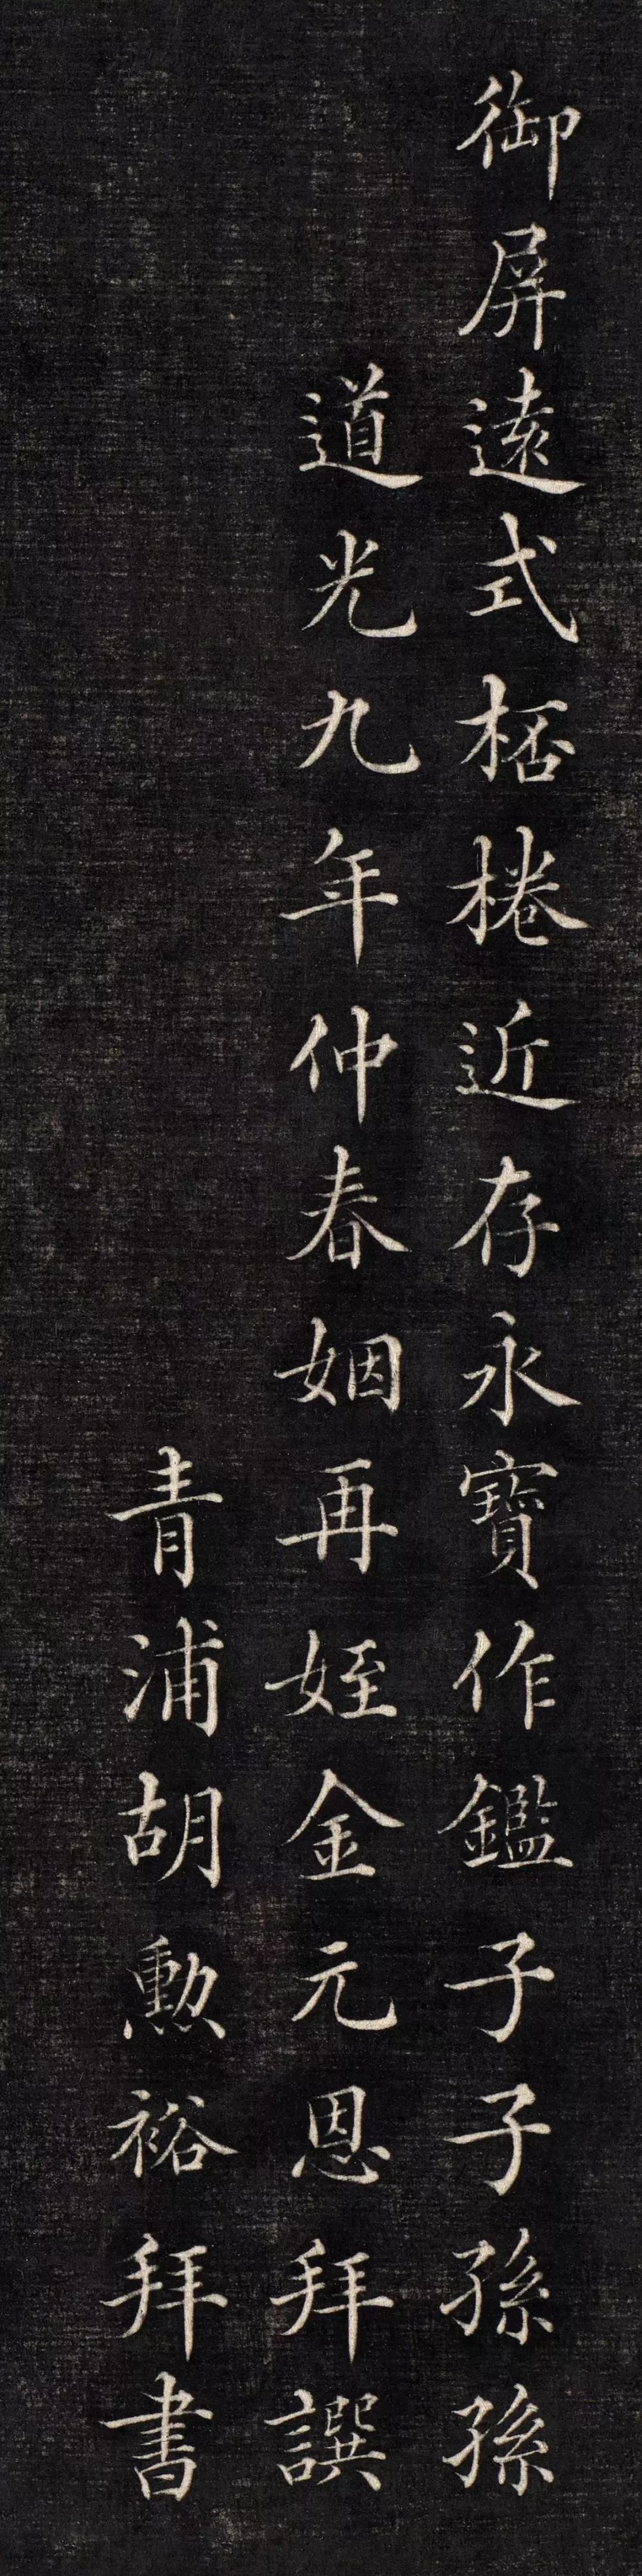 御屏遠式桮棬近存永寶作鑑子子孫孫
道光九年仲春姻再姪金元恩拜譔
青浦胡勲裕拜書